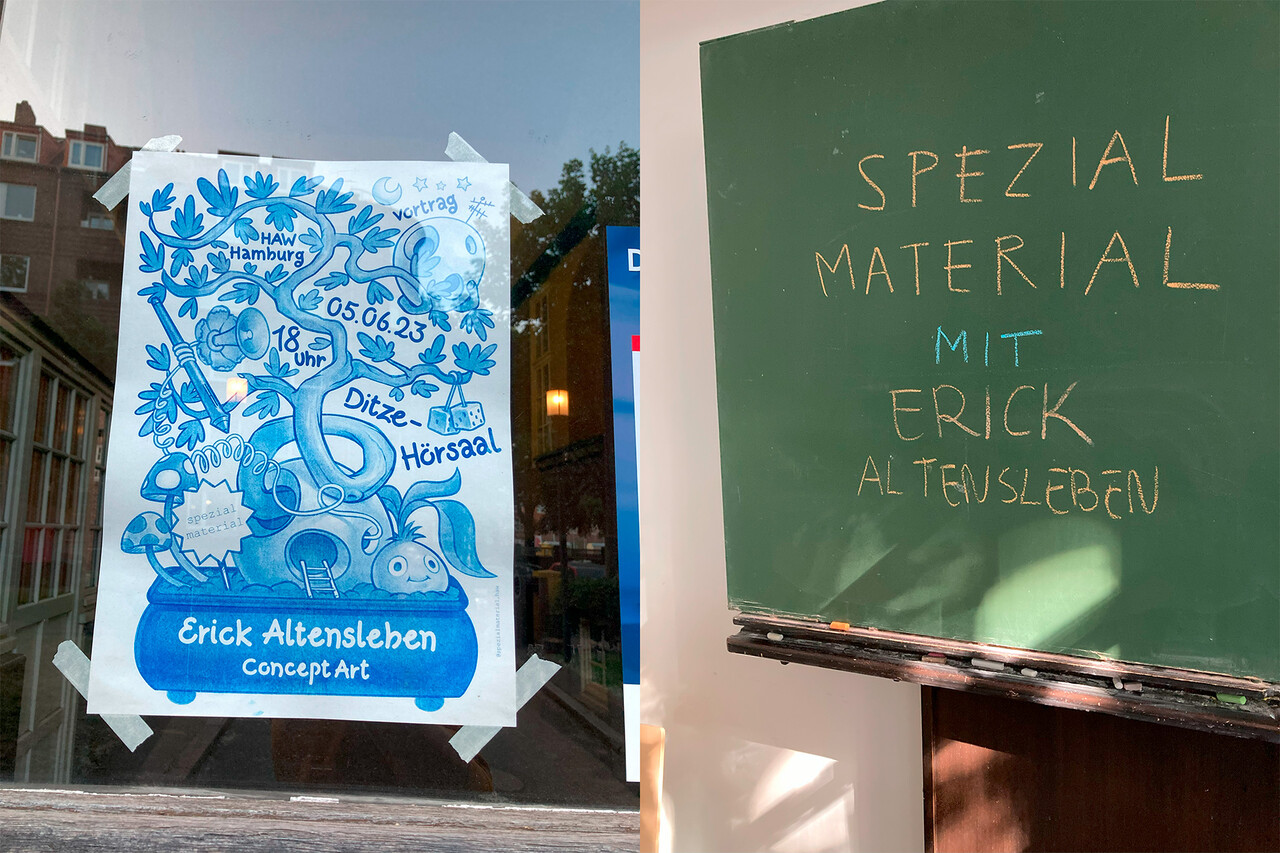 Vortrag
HAW
Hamburg
05.06.23
18
Uhr
Ditze-
Hörsaal
spezial
material
Erick Altensleben
Concept Art
D
SPEZIAL
MATERIAL
MIT
ERICK
ALTENSLEBEN